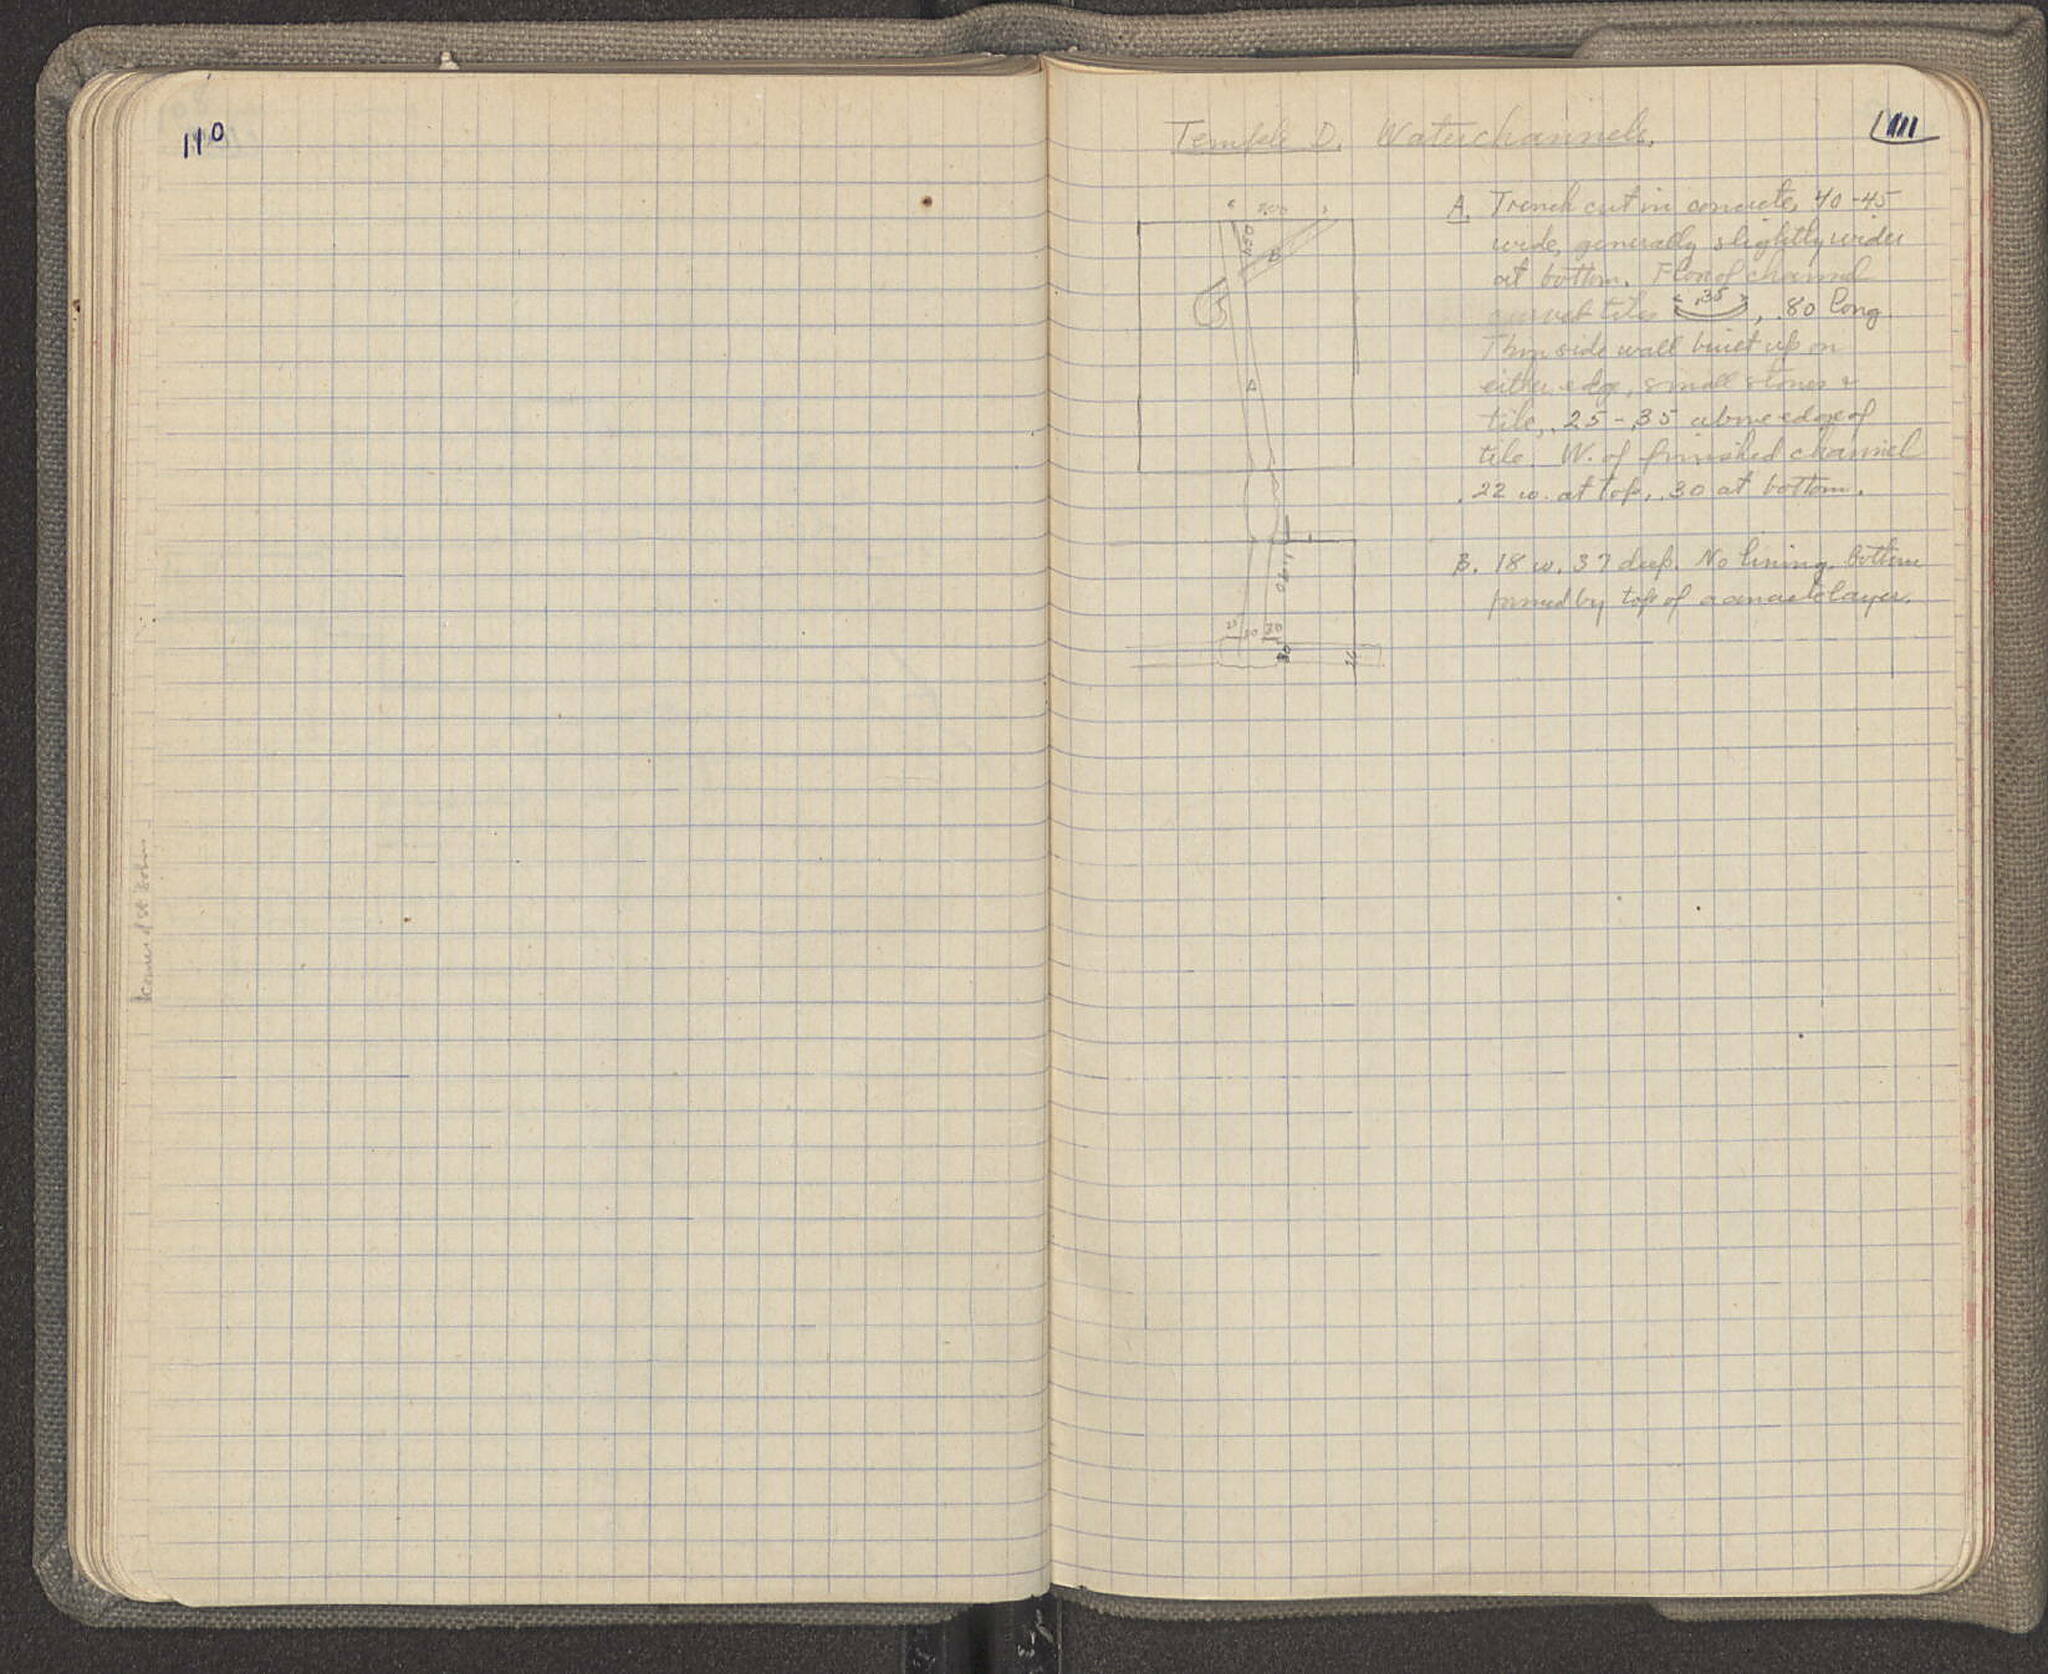 110
111
Temple D. Waterchannels.
A. Trench cut in concrete, 40-45
wide, generally slightly wider
at bottom. Floor of channel
tiles .35, .80 long.
Thin side wall built up on
either edge, small stones &
tile, .25-.35 above edge of
tile. W. of finished channel
.22 w. at top, .30 at bottom.
B. 18 w. 37 deep. No lining, bottom
formed by top of layer.
B
A
30